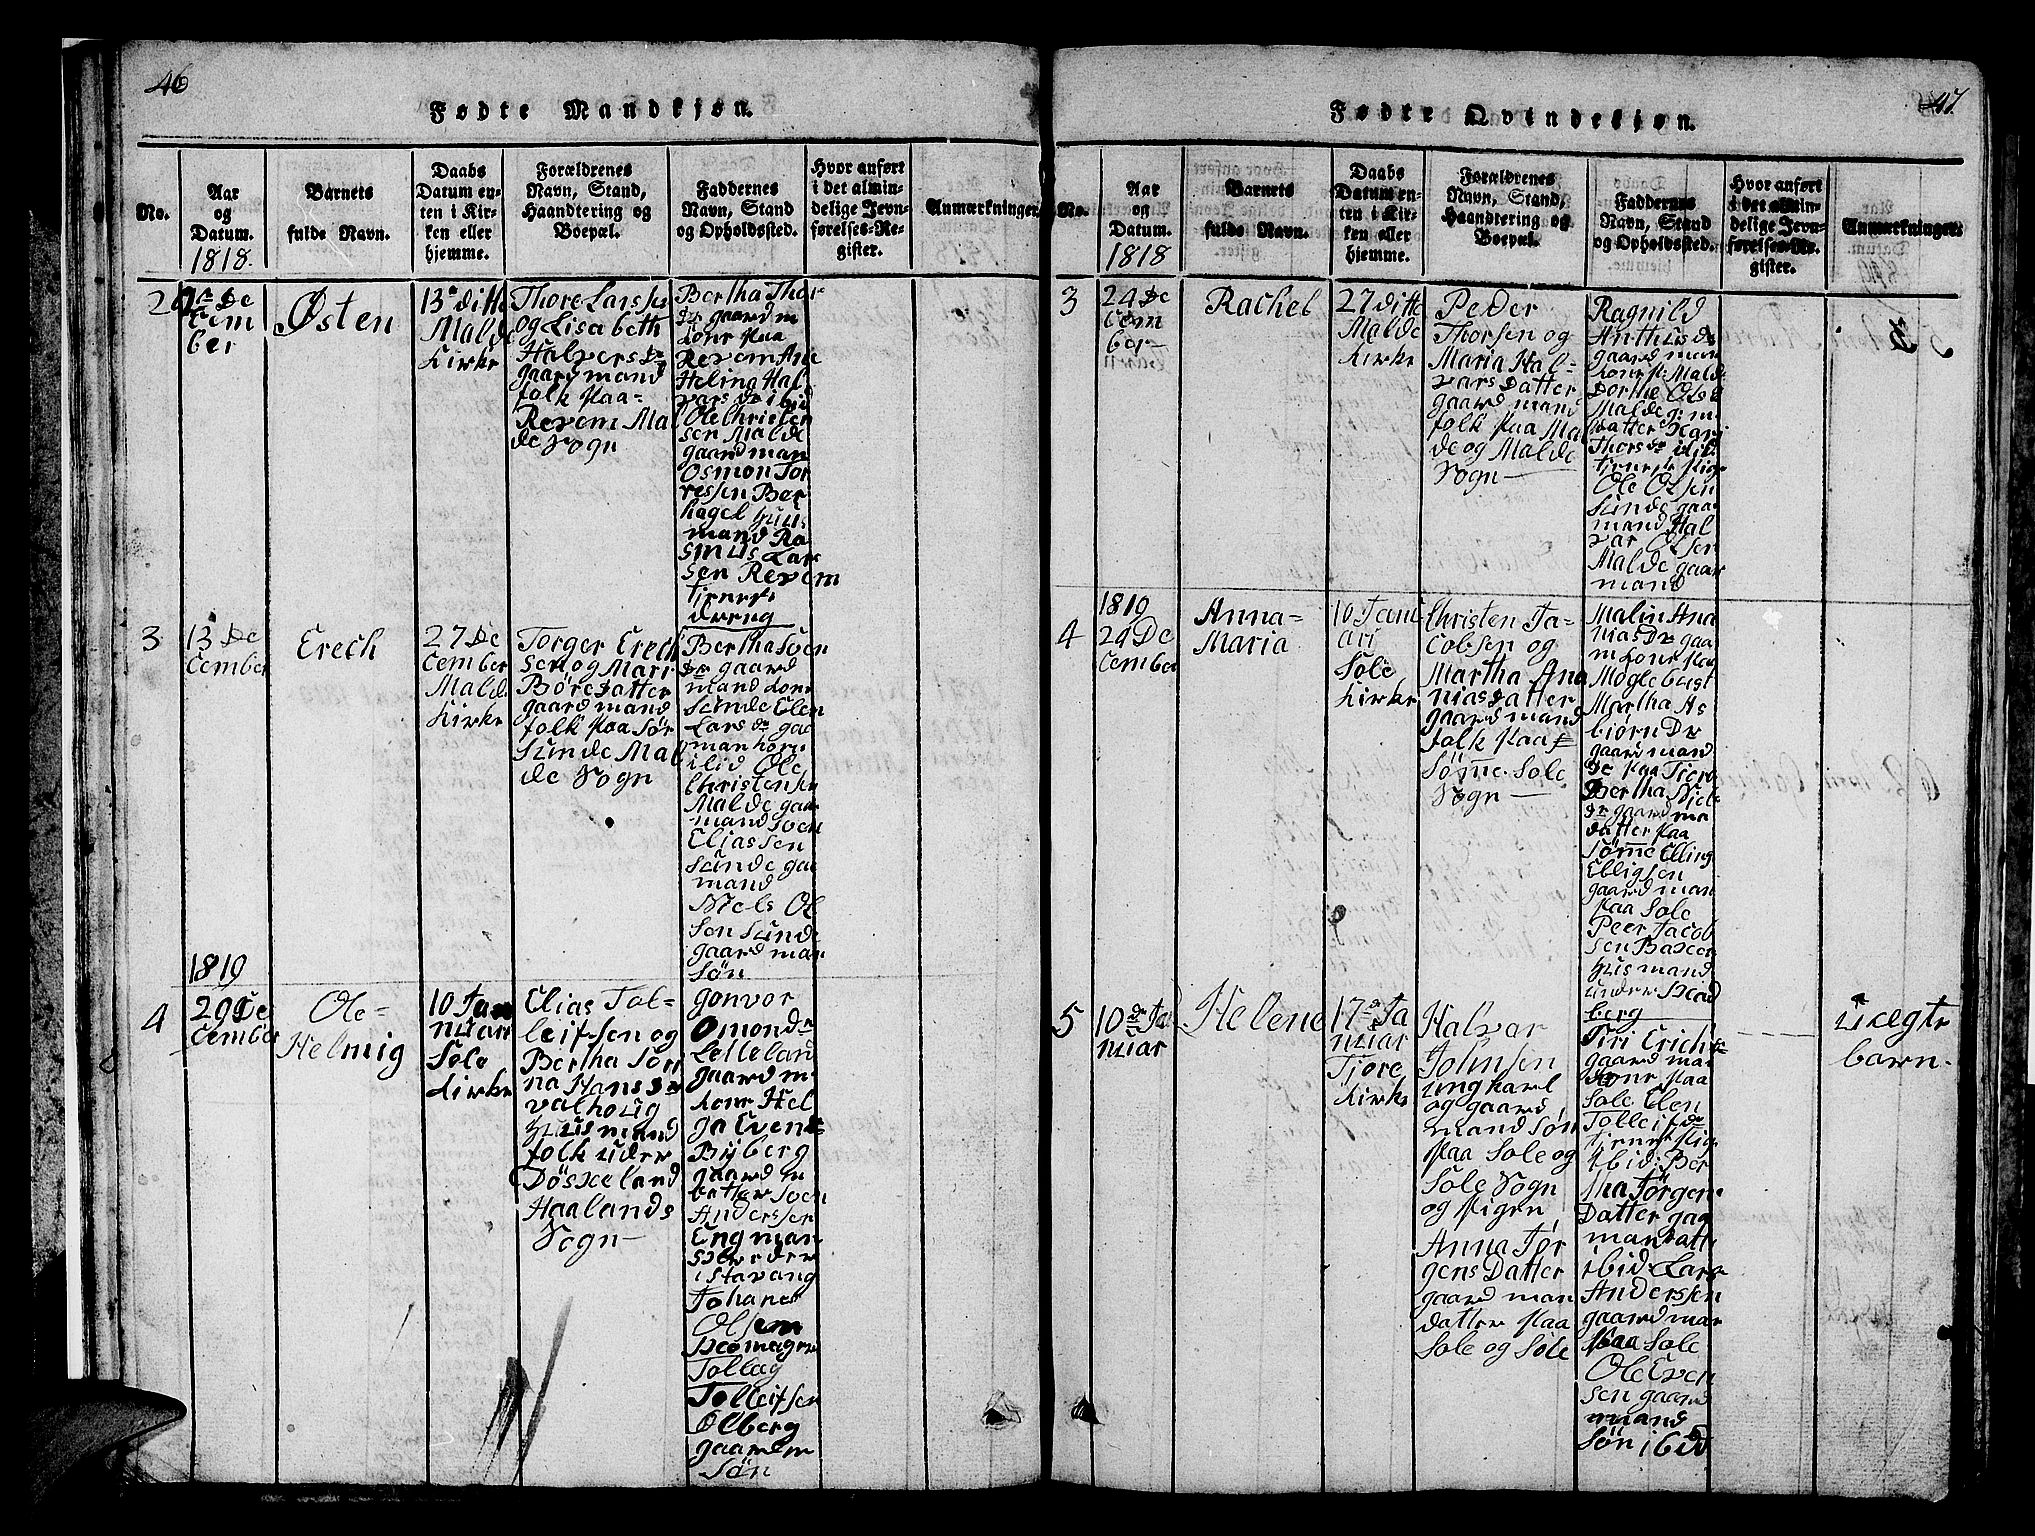 46
Fødte Mandkjøn.
No.
Aar
og
Datum.
1818.
Barnets
fulde Navn.
Daabs
Datum en-
ten i Kir-
ken eller
hjemme.
Forældrenes
Navn, Stand,
Haandtering og
Boepæl.
Faddernes
Navn, Stand
og Opholdssted.
Hvor anført
i det almin-
delige Jevn-
førelses-Re-
gister.
Anmærkninger.
2
De
Cem
ber
Østen
13 ditte
Malde
Kirke
Thore Larssen
og Lisabeth
Halvers Dr
gaardmand
folk paa
Revem Mal
de Sogn
Bertha Thor
Dr gaardm
Kone paa
Revem Ane
Heling Hal
vars Dr ibid
Ole Christen
sen Malde
gaardman
Osmon Tor
ressen Ber
hagel Huus
mand Ra
smus Lar
sen Revem
tjeneste
dreng
3
13 De
Cember
Erech
27 De
Cember
Malde
Kirke
Torger Erech
sen og Mari
Böre Datter
gaardmand
folk paa Sør
Sunde Mal
de Sogn
Bertha Sven
Dr gaard
mand Kone
Sunde Elen
Lars Dr gaa
man Kone
ibid Ole
Christensen
Malde gaa
mand Sven
Eliassen
Sunde gaa
mand
Niels Ol
sen Sunde
gaardman
Søn
1819
4
29 De
Cember
Ole
Helmig
10 Jan
nuari
Sole
Kirke
Elias Tol-
leifsen og
Bertha Jön
na Hans Dr
valhoug
Huusmand
folk under
Döskeland
Haalands
Sogn
gonvor
Omond Dr
Lelleland
gaardm
Kone Hel
ga Evens
Byberg
gaardm
datter Sven
Anderssen
Engman
i Stavang
Johanes
Olsen
Tollag
Tolleifsen
Ølberg
gaarem
Søn
47.
Fødte Qvindekjøn.
No.
Aar
og
Datum.
1818
Barnets
fulde Navn.
Daabs
Datum en-
ten i Kir-
ken eller
hjemme.
Forældrenes
Navn, Stand,
Haandtering og
Boepæl.
Faddernes
Navn, Stand
og Opholdssted.
Hvor anført
i det almin-
delige Jevn-
førelses-Re-
gister.
Anmærkninger.
3
24 De
Cem
ber
Rachel
27 ditte
Malde
Kirke
Peder
Thorsen og
Maria Hal-
vars Datter
gaardmand
folk paa Mal
de og Malde
Sogn
Ragnild
gaardman
Kone p: Malde
Dorthe Ols Dr
Malde g: m
datter Kari
Thors Dr ibid
tjeneste pige
Ole Olsen
Sunde gaa
mand Hal
var Olsen
Malde gaar
mand
1819
4
29 De
Cember
Anna-
Maria
10 Janu
ari
Sole
Kirke
Christen Ja
cobsen og
Martha Ana
nias Datter
gaardmand
folk paa
Sömme Sole
Sogn
Malin Ana
nias Dr gaa
m Kone paa
Møglebust
Martha As
biørn Dr
gaardmand
paa Tjora
Bertha Niel
Dr gaardma
datter paa
Sömme Elling
Elligsen
gaardman
paa Sole
Peer Jacob
sen
Huusmand
under
berg
5
10 Ja
nuar
Helene
17 Ja
nuar
Tjore
Kirke
Halvar
Johnsen
ungkarl
og gaard
mand Søn
paa Sole og
Sole Sogn
og pigen
Anna Jør
gens Datter
gaardman
datter paa
Sole og Sole
Siri Erich
gaardman
Kone paa
Sole Elen
Tolleif Dr
tjeneste pige
ibid: Ber
tha Jörgen
Datter gaa
mandatt
ibid Lars
Anderssen
gaardman
paa Sole
Ole Even
sen gaard
mand
Søn ibid
Uægte
barn.